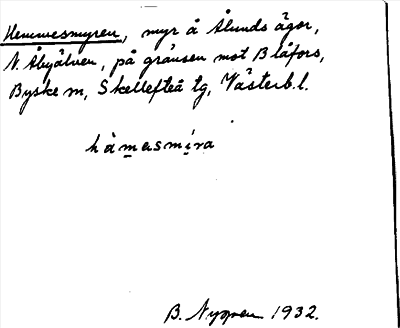 Hemmesmyren, myr å Ålunds ägor,
N. Åbyälven, på gränsen mot Blåfors,
Byske sn, Skellefteå tg, Västerb. l.
hàmasmíra
B. Nygren 1932.